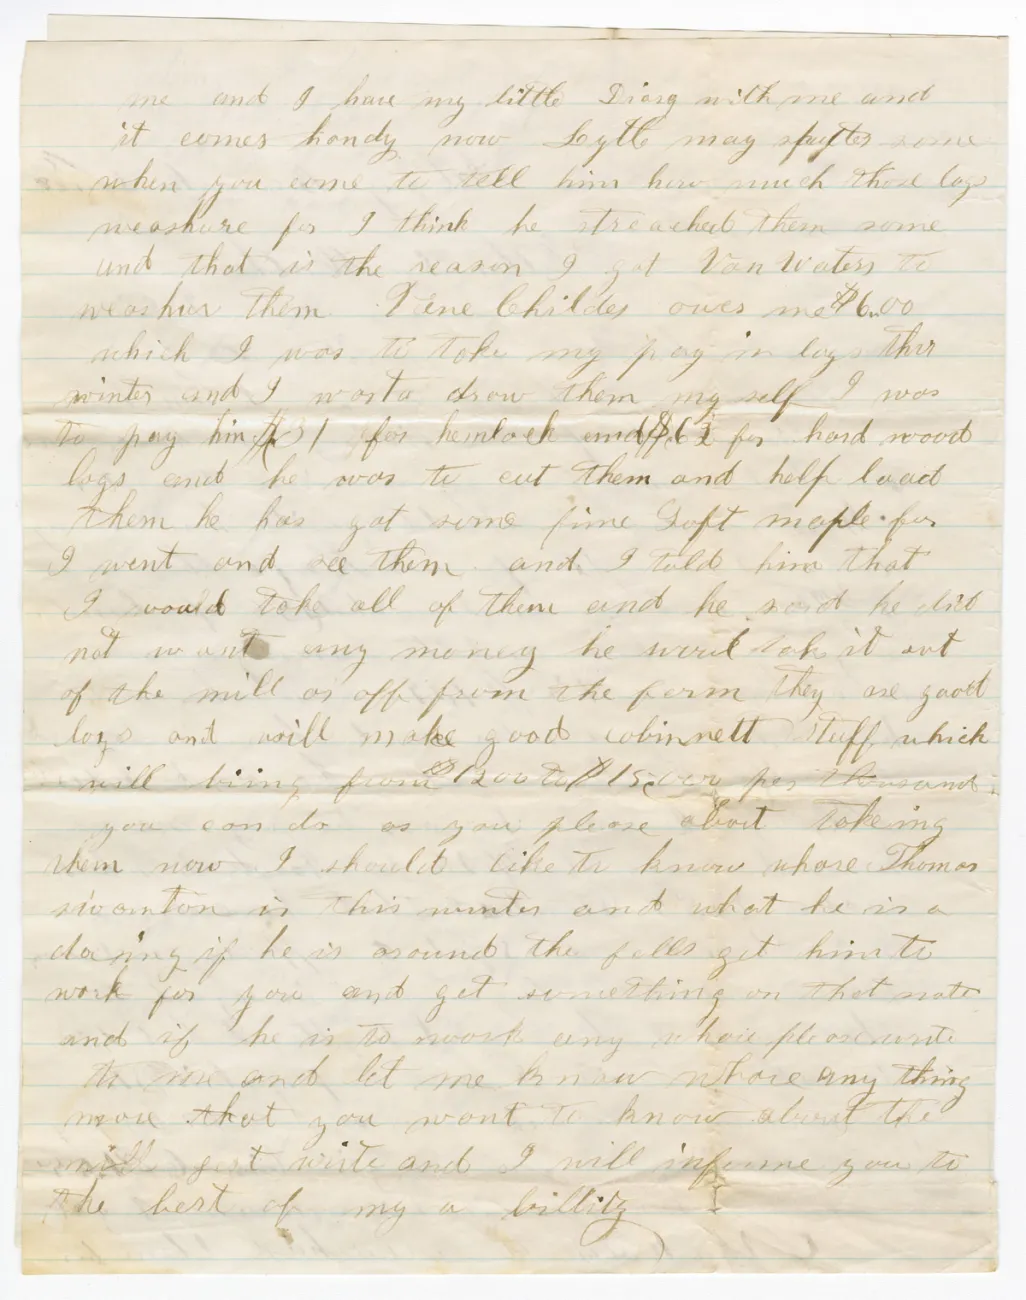 me and I have my little Diary with me and
it comes handy now Lytle may sputter some
when you come to tell him how much those logs
meashure for I think he streached them some
and that is the reason I got Van Waters to
meashur them Childes owes me $6.00
which I was to take my pay in logs this
winter and I was to draw them my self I was
to pay him $31 for hemlock and for hard wood
logs and he was to cut them and help load
them he has got some fine Soft maple for
I went and see them and I told him that
I would take all of them and he said he did
not want any money he would take it out
of the mill or off from the farm they are good
logs and will make good cobinnett stuff which
will bring from to per thousand
you can do as you please about takeing
them now I should like to know whare Thomas
swanton is this winter and what he is a
doing if he is around the falls get him to
work for you and get something on that note
and if he is to work any whare please write
to me and let me know whare any thing
more that you want to know about the
mill just write and I will informe you to
the best of my a billity